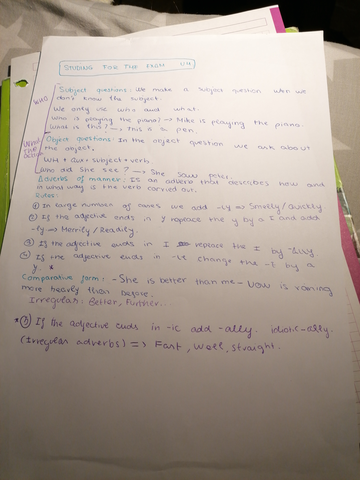 STUDING FOR THE EXAM U4
Subject questions: We make a subject question when we
WHO don't know the subject.
We only use who and what.
Who is playing the piano? → Mike is playing the piano.
What is this? → This is a pen.
Object questions: In the object question we ask about
the object.
WH + aux + subject + verb.
Who did she see? → She saw peter.
Adverbs of manner: Is an adverb that describes how and
in what way is the verb carried out.
rules:
① In large number of cases we add -ly ⇒ Smelly/Quickly
② If the adjective ends in y replace the y by a I and add
-ly ⇒ Merrily/Readily.
③ If the adjective ends in I replace the I by
④ If the adjective ends in -le change the -e by a
y. *
Comparative form: - She is better than me - Now is raining
more heavily than before.
Irregular: Better, Further.
* ⑤ If the adjective ends in -ic add -ally. idiotic-ally.
(Irregular adverbs) => Fast, Well, Straight.